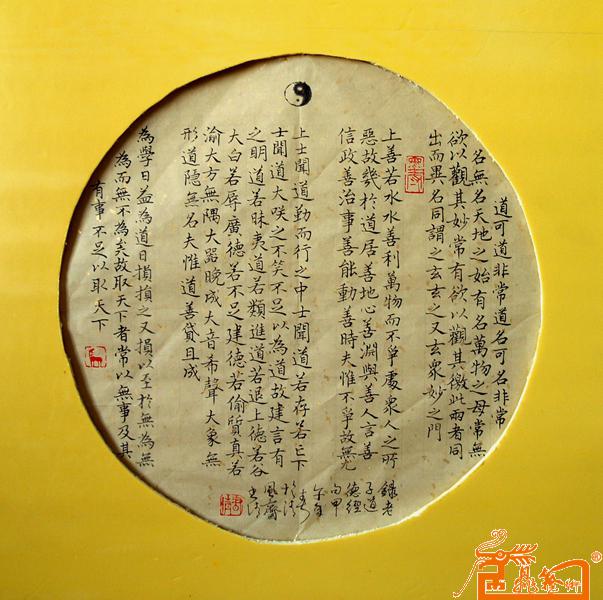 道可道非常道名可名非常
名無名天地之始有名萬物之母常無
欲以觀其妙常有欲以觀其徼此兩者同
出而異名同謂之玄玄之又玄衆妙之門
上善若水水善利萬物而不爭處衆人之所
惡故幾於道居善地心善淵與善人言善
信政善治事善能動善時夫惟不爭故無尤
上士聞道勤而行之中士聞道若存若亡下
士聞道大咲之不笑不足以為道故建言有
之明道若昧夷道若類進道若退上德若谷
大白若辱廣德若不足建德若偷質真若
渝大方無隅大器晚成大音希聲大象無
形道隐無名夫惟道善貸且成
為學日益為道日損損之又損以至於無為無
為而無不為矣故取天下者常以無事及其
有事不足以取天下
錄老
子道
德經
句甲
午年
春
於清
風齋